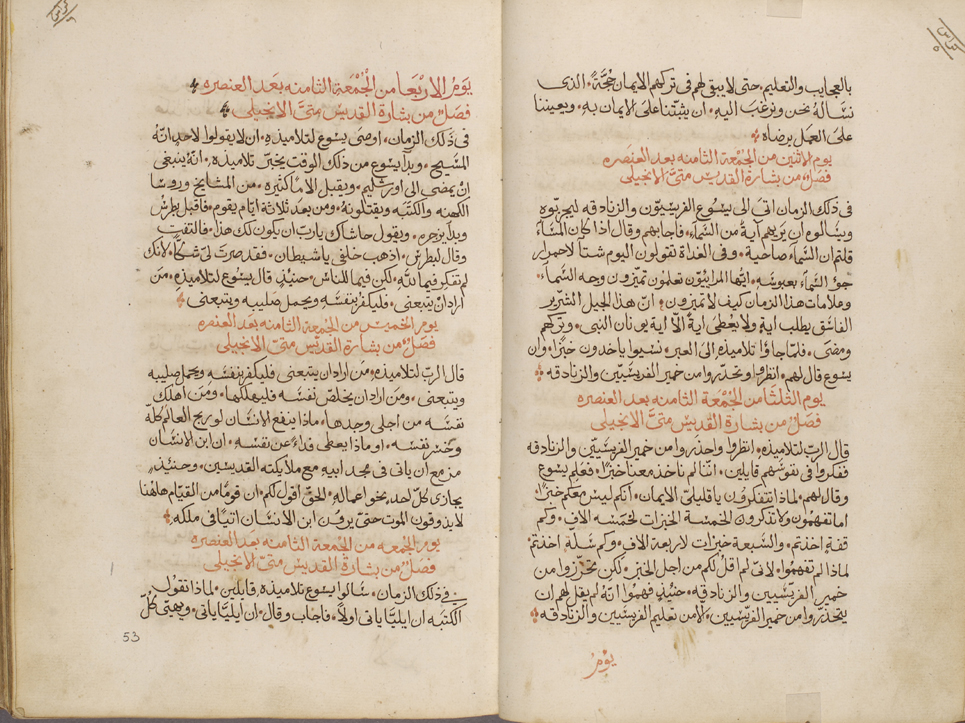 بالعجايب والتعليم، حتى لا يبقى لهم فى تركهم الايمان حُجَّةً، الذى
نسَالهُ نحن ونرغبَ اليهِ، ان يثبّتنا على الايمان بهِ، ويعيننا
على العمل برضاه
يوم الاثنين من الجُمْعَة الثامنه بعد العنصَره
فصَلٌ من بشارة القديسْ متىَّ الانجيلى
فى ذلك الزمان اتى الى يسُوع الفريسْيّون والزنادقه ليجرّبوه
ويسَالوه ان يريهم آيةً من السَّمآء، فاجابهم وقال اذا كان المسَآء
قلتم ان السَّمآء صَاحية، وفى الغداة تقولون اليوم شتآ لاحمرار
جوّ السَّمآء بعبوسَهِ، ايّها المرآييّون تعلمون تميّزون وجه السَّماء،
وعلامات هذا الزمان كيف لا تميّزون، انّ هذا الجيل الشرّير
الفاسَق يطلب ايةً ولا يُعطى ايةً الّا اية يونان النبى، وتركهم
ومضى، فلمّا جاؤا تلاميذه الى العبر، نسَيوا ياخدون خبزًا، وان
يسَوع قال لهم، انظروا وتحذّروا من خمير الفريسَيّين والزنادقه
يوم الثلثا من الجُمْعَة الثامنه بعد العنصره
فصَلٌ من بشارة القديسْ متىَّ الانجيلى
قال الربّ لتلاميذه، انظروا واحذروا من خمير الفريسَيّين والزنادقه
ففكروا فى نفوسَهم قايلين، انّنا لم ناخذ معنا خبزًا، فعَلِم يسُوع
وقال لهم، لماذا تتفكرون يا قليلىّ الايمان، انّكم ليسَ معكم خبزًا،
اما تفهمُون ولا تذكرون الخمسَة الخبزات لخمسَة الاف، وكم
قفةٍ اخذتم، والسَّبعة خبزات لاربعة الاف، وكم سَلة اخذتم،
لماذا لم تفهمُوا، لانّى لم اقل لكم من اجل الخبز، لكن تحرّزوا من
خمير الفريسَيين والزنادقه، حنيْذٍ فهمُوا انّه لم يقل لهم ان
يتحذّروا من خمير الفريسَيين، لا من تعليم الفريسَيين والزنادقه
يوْمُ
يَومُ الاربْعَا من الْجُمْعَة الثامنه بعَد العنصره
فصَلٌ من بشارة القديسْ متىَّ الانجيلى
فى ذَلك الزمان، اوصَى يسُوع لتلاميذه، ان لا يقولوا لاحدٍ انّهُ
المسَّيح، وبدا يسَوع من ذلك الوقت يخبر تلاميذه، انّهُ ينبغى
انْ يمضى الى اورشليم، ويقبل الامًا كثيره، من المشايخ وروسَا
الكهنه والكتَبَه ويقتلونهُ، ومن بعَد ثلاثة ايّام يقوم، فاقبل بطرسْ
وبدا يزجره، ويقول حاشاك يا ربّ ان يكون لك هذا، فالتفت
وقال لبطرسْ، اذهب خلفى يا شيطان، فقد صرت لى شكًّا، لانك
لم تفكر فيما للّه، لكن فيما للناس، حنيْذٍ قال يسَوع لتلاميذه، مَن
اراد انْ يتبعنى، فليكفر بنفسَهِ ويحمل صَليبهِ ويتبعنى
يوم الخميسْ من الجمعة الثامنه بعَد العنصره
فصَلٌ من بشارة القديّس متىّ الانجيلى
قال الربّ لتلاميذه، مَن اراد ان يتبعنى فليكفر بنفسَهِ، ويحمل صليبه
ويتبعنى، ومَن اراد ان يخلّصَ نفسَهِ فليهلكها، ومَن اهلك
نفسَهِ من اجلى وجدها، ماذا ينفع الانسَان لو ربح العالم كلّه
وخسر نفسَهِ، او ماذا يعطى فداءً عن نفسَهِ، ان ابن الانسَان
مزمع ان ياتى فى مجد ابيهِ مع ملايكته القديسَين، وحنيْذٍ
يجازى كلّ احدٍ بنحو اعمالهِ، الحقّ اقول لكم، ان قومًا من القيام هاهُنا
لا يذوقون الموت حتىّ يرون ابن الانسَان اتيًا فى ملكه
يوم الجمعه من الجمعة الثامنه بعَد العنصره
فصَلٌ من بشارة القديسْ متىّ الانجيلى
فى ذلك الزمان، سَالوا يسَوع تلاميذه قايلين، لماذا تقول
الكتبَه ان ايليّا ياتى اولًا، فاجاب وقال، ان ايليّا ياتى، ويهيّى كلّ
53